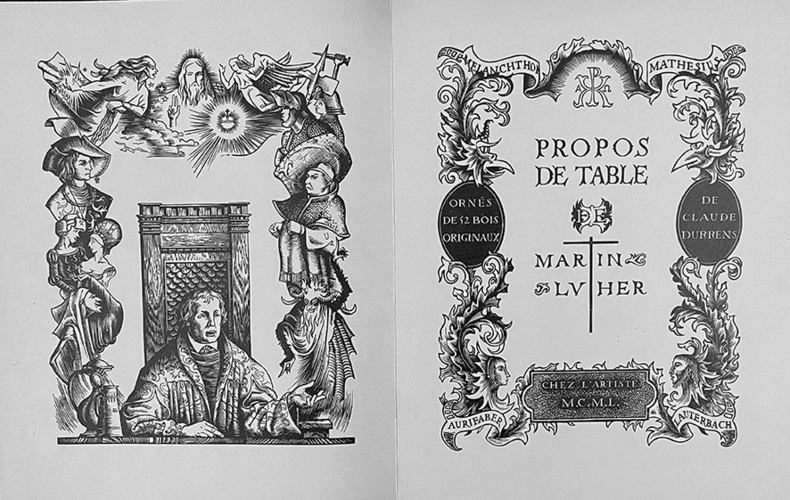 MELANCHTHON
MATHESIUS
PROPOS
DE TABLE
DE
MARTIN
LVTHER
ORNÉS
DE 52 BOIS
ORIGINAUX
DE
CLAUDE
DURRENS
CHEZ L'ARTISTE
M.C.M.L.
AURIFABER
LAUTERBACH